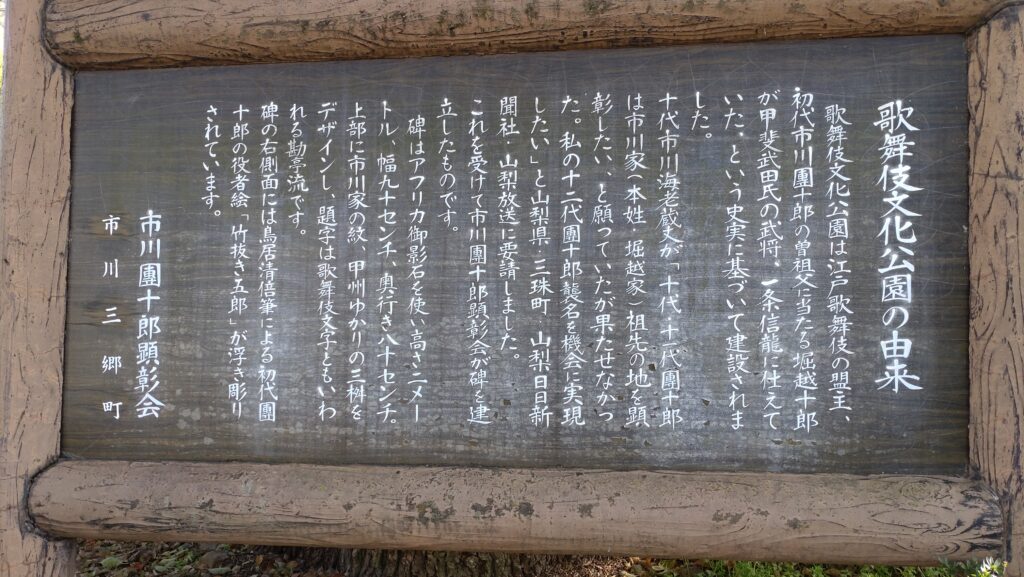 歌舞伎文化公園の由来
歌舞伎文化公園は江戸歌舞伎の盟主、
初代市川團十郎の曽祖父に当たる堀越十郎
が甲斐武田氏の武将、一条信龍に仕えて
いた、という史実に基づいて建設されま
した。
十代市川海老蔵丈が「十代、十一代團十郎
は市川家(本姓・堀越家)祖先の地を顕
彰したい、と願っていたが果たせなかっ
た。私の十二代團十郎襲名を機会に実現
したい」と山梨県、三珠町、山梨日日新
聞社・山梨放送に要請しました。
これを受けて市川團十郎顕彰会が碑を建
立したものです。
碑はアフリカ御影石を使い高さ二メー
トル、幅九十センチ、奥行き八十センチ。
上部に市川家の紋、甲州ゆかりの三桝を
デザインし、題字は歌舞伎文字ともいわ
れる勘亭流です。
碑の右側面には鳥居清倍筆による初代團
十郎の役者絵「竹抜き五郎」が浮き彫り
されています。
市川團十郎顕彰会
市川三郷町